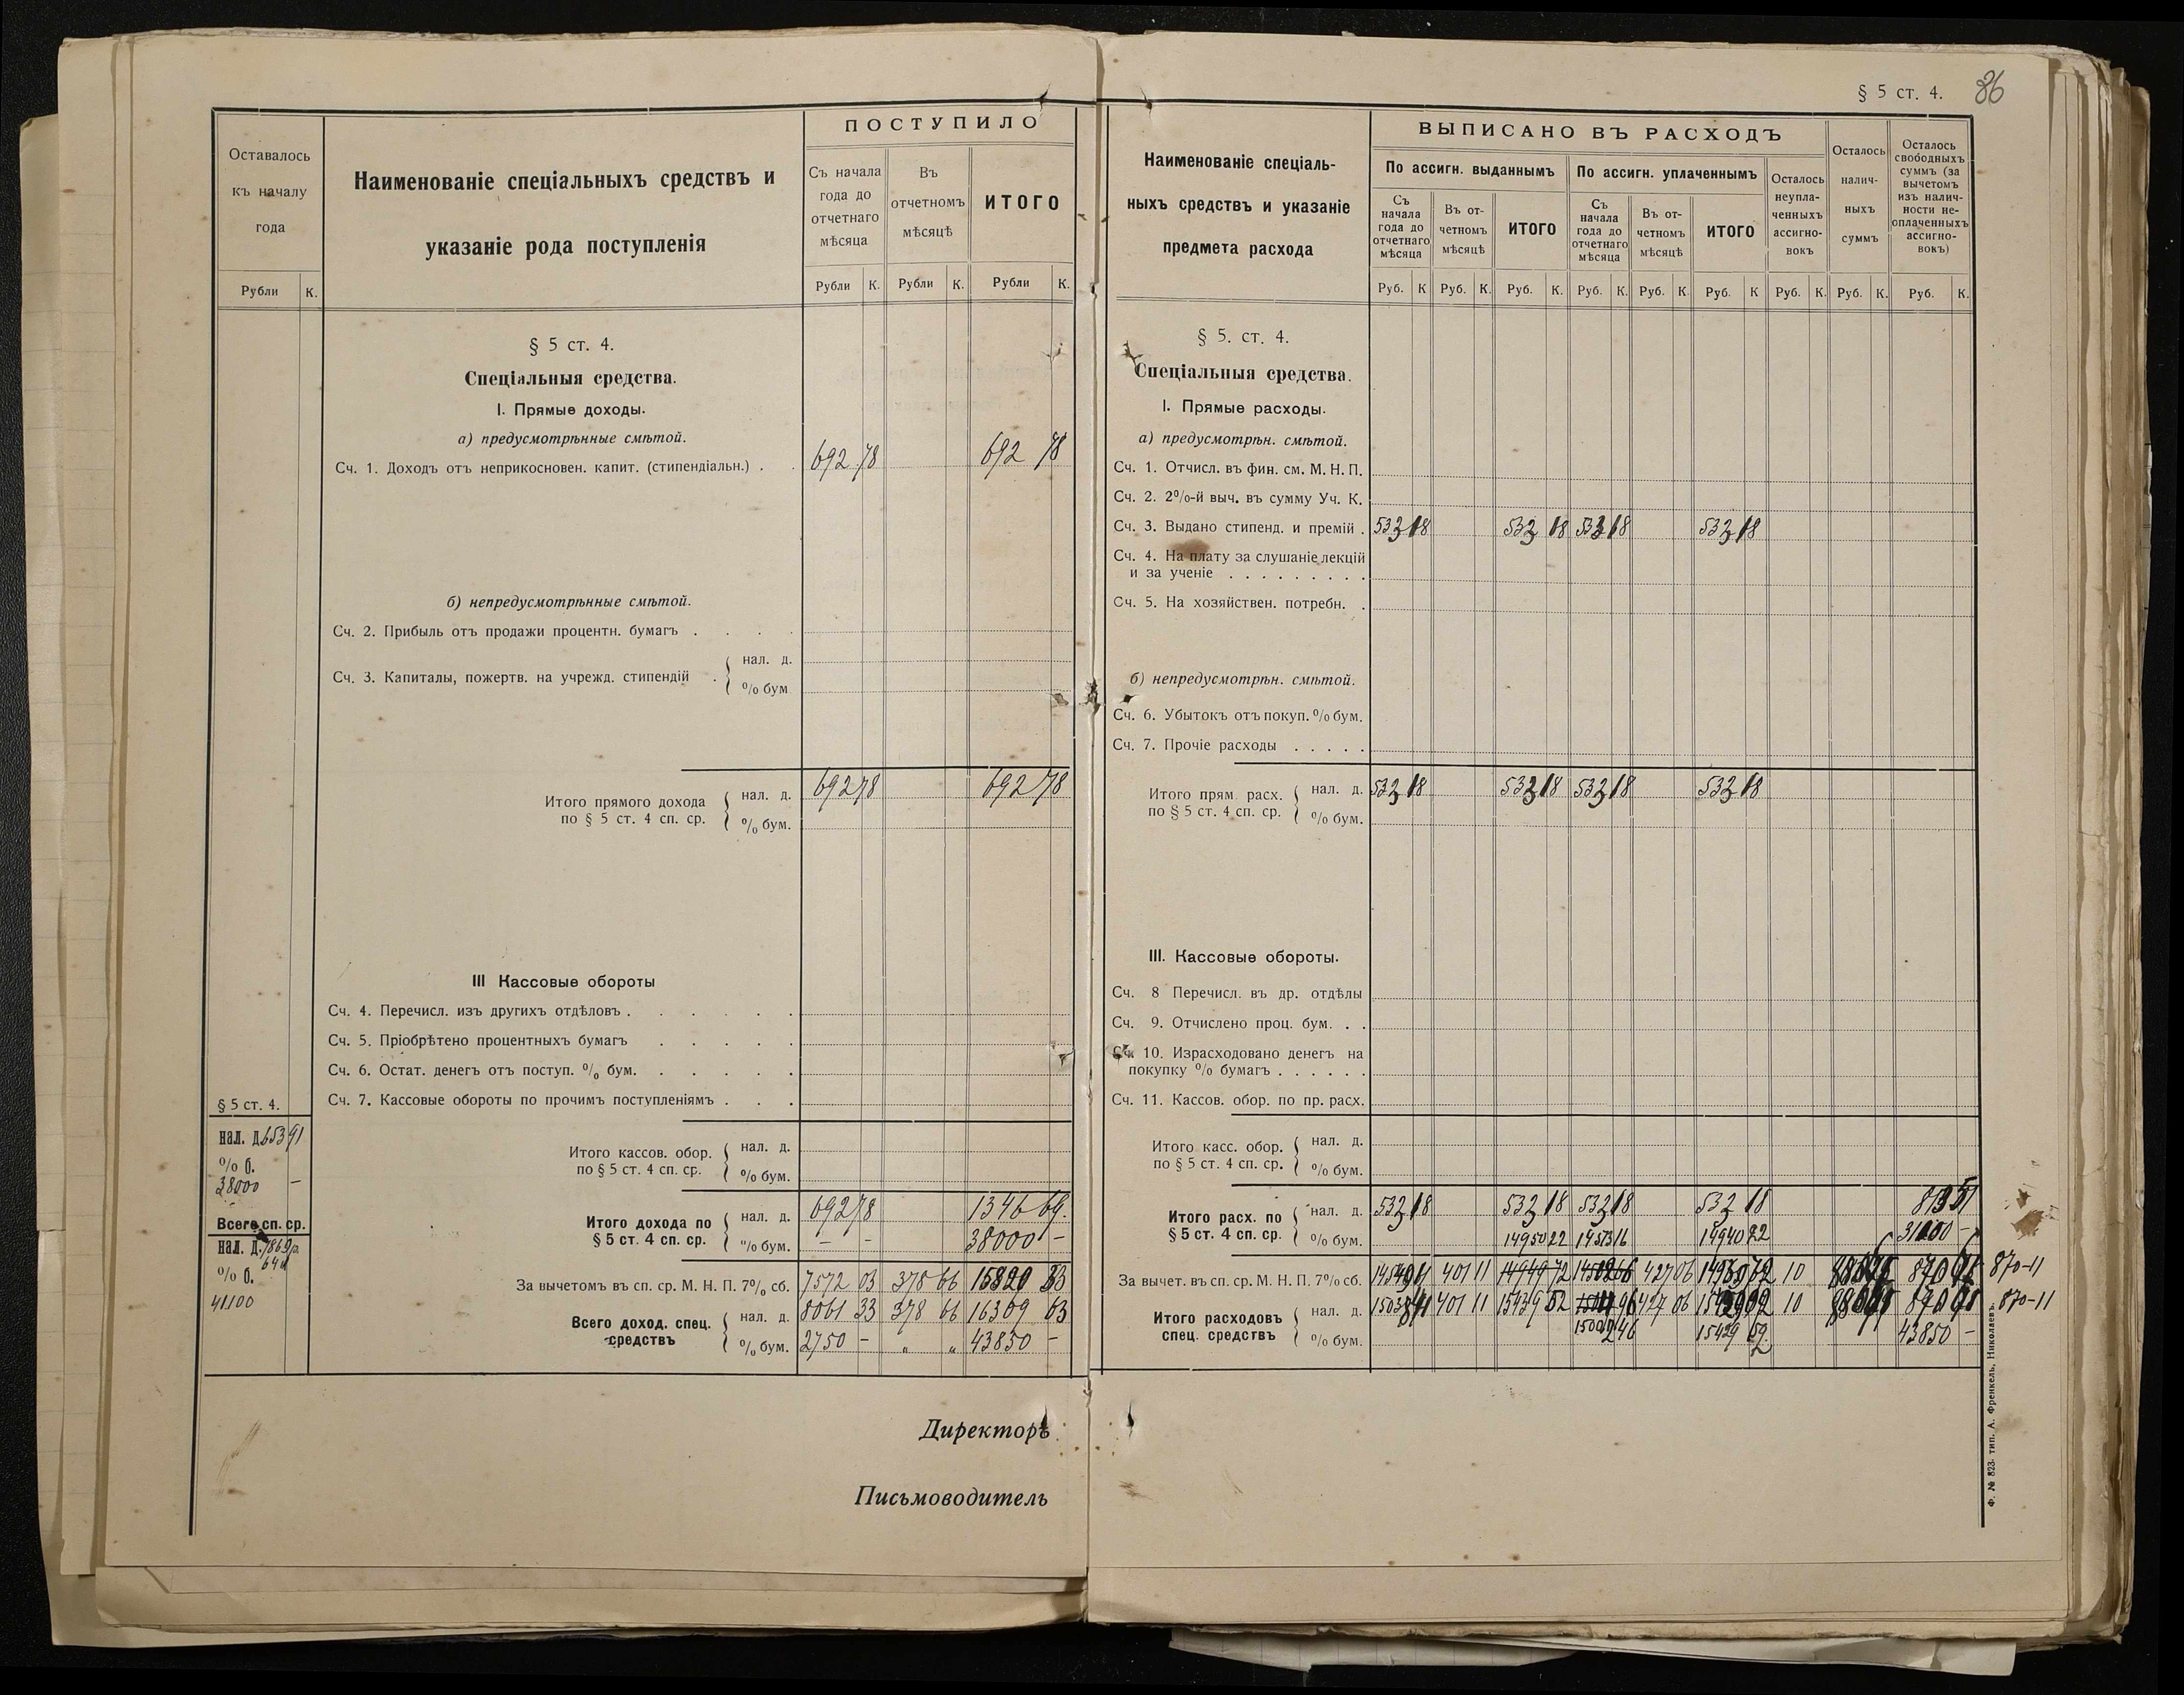 § 5 ст. 4. 86
Оставалось
къ началу
года
Рубли К.
Наименованіе спеціальныхъ средствъ и
указаніе рода поступленія
ПОСТУПИЛО
Съ начала
года до
отчетнаго
мѣсяца
Въ
отчетномъ
мѣсяцѣ
ИТОГО
Рубли К. Рубли К. Рубли К.
§ 5 ст. 4.
Спеціальныя средства.
I. Прямые доходы.
а) предусмотрѣнные смѣтой.
Сч. 1. Доходъ отъ неприкосновен. капит. (стипендіальн.) . . 692 78 692 78
б) непредусмотрѣнные смѣтой.
Сч. 2. Прибыль отъ продажи процентн. бумагъ . . . .
Сч. 3. Капиталы, пожертв. на учрежд. стипендій . { нал. д.
% бум
Итого прямого дохода { нал. д. 692 78 692 78
по § 5 ст. 4 сп. ср. { % бум.
III Кассовые обороты
Сч. 4. Перечисл. изъ другихъ отдѣловъ . . . . . .
Сч. 5. Пріобрѣтено процентныхъ бумагъ . . . . .
Сч. 6. Остат. денегъ отъ поступ. % бум. . . . . .
Сч. 7. Кассовые обороты по прочимъ поступленіямъ . . .
§ 5 ст. 4.
нал. д. 653 91
% б.
38000 —
Всего сп. ср.
нал. д. 7869 р.
64
% б.
41100
Итого кассов. обор. { нал. д.
по § 5 ст. 4 сп. ср. { % бум.
Итого дохода по { нал. д. 692 78 1346 69.
§ 5 ст. 4 сп. ср. { % бум. — — 38000 —
За вычетомъ въ сп. ср. М. Н. П. 7% сб. 7572 03 378 66 15820 33
Всего доход. спец. { нал. д. 8061 33 378 66 16309 63
средствъ { % бум. 2750 — „ „ 43850 —
Директоръ
Письмоводитель
Наименованіе спеціаль-
ныхъ средствъ и указаніе
предмета расхода
ВЫПИСАНО ВЪ РАСХОДЪ
По ассигн. выданнымъ По ассигн. уплаченнымъ
Съ
начала
года до
отчетнаго
мѣсяца
Въ от-
четномъ
мѣсяцѣ
ИТОГО
Съ
начала
года до
отчетнаго
мѣсяца
Въ от-
четномъ
мѣсяцѣ
ИТОГО
Осталось
неупла-
ченныхъ
ассигно-
вокъ
Осталось
налич-
ныхъ
суммъ
Осталось
свободныхъ
суммъ (за
вычетомъ
изъ налич-
ности не-
оплаченныхъ
ассигно-
вокъ)
Руб. К Руб. К. Руб. К. Руб. К. Руб. К Руб. К Руб. К. Руб. К. Руб. К.
§ 5. ст. 4.
Спеціальныя средства.
I. Прямые расходы.
а) предусмотрѣн. смѣтой.
Сч. 1. Отчисл. въ фин. см. М. Н. П.
Сч. 2. 2%-й выч. въ сумму Уч. К.
Сч. 3. Выдано стипенд. и премій . 532 18 532 18 532 18 532 18
Сч. 4. На плату за слушаніе лекцій
и за ученіе . . . . . . . . .
Сч. 5. На хозяйствен. потребн. .
б) непредусмотрѣн. смѣтой.
Сч. 6. Убытокъ отъ покуп. % бум.
Сч. 7. Прочіе расходы . . . . .
Итого прям. расх. { нал. д. 532 18 532 18 532 18 532 18
по § 5 ст. 4 сп. ср. { % бум.
III. Кассовые обороты.
Сч. 8 Перечисл. въ др. отдѣлы
Сч. 9. Отчислено проц. бум. . .
Сч. 10. Израсходовано денегъ на
покупку % бумагъ . . . . . .
Сч. 11. Кассов. обор. по пр. расх.
Итого касс. обор. { нал. д.
по § 5 ст. 4 сп. ср. { % бум.
Итого расх. по { нал. д. 532 18 532 18 532 18 532 18
§ 5 ст. 4 сп. ср. { % бум. 14950 22 14513 16 14940 22
За вычет. въ сп. ср. М. Н. П. 7% сб. 401 11 14949 72 427 06 10 870-11
Итого расходовъ { нал. д. 401 11 15439 52 427 06 10 870-11
спец. средствъ { % бум. 15429 43850 —
Ф. № 823. тип. А. Френкель, Николаевъ.